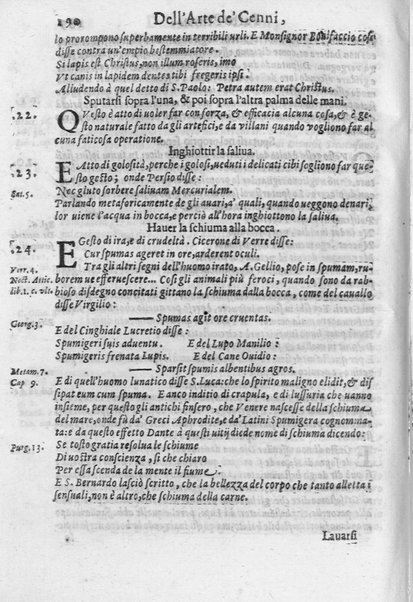 190 Dell'Arte de' Cenni,
lo prorompono superbamente in terribili urli. E Monsignor Bonifaccio cosi
disse contra un'empio bestemmiatore.
Si lapis est Christus, non illum roseris, imo
Ut canis in lapidem dentes tibi fregeris ipsi.
Alludendo à quel detto di S. Paolo: Petra autem erat Christus.
Sputarsi sopra l'una, & poi sopra l'altra palma delle mani.
.22. Questo è atto di voler far con sforza, & efficacia alcuna cosa, & è ge-
sto naturale fatto da gli artefici, e da villani quando vogliono far al
cuna faticosa operatione.
Inghiottir la saliua.
.23. E Atto di golosità, perche i golosi, ueduti i delicati cibi sogliono far que-
sto gesto; onde Persio disse:
Sat. 5. Nec gluto sorbere saliuam Mercurialem.
Parlando metaforicamente de gli auari, a' quali, quando ueggono denari,
lor uiene l'acqua in bocca, e perciò all'hora inghiottono la saliua.
Hauer la schiuma alla bocca.
.24. E Gesto di ira, e di crudeltà. Cicerone di Verre disse:
Verr. 4. Cur spumas ageret in ore, arderent oculi.
Noct. Attic. Tra gli altri segni dell'huomo irato, A. Gellio, pose in spumam, ru-
lib. 1. c. vlt. borem ue efferuescere... Cosi gli animali più feroci, quando sono da rab-
bioso disdegno concitati gittano la schiuma dalla bocca, come del cauallo
disse Virgilio:
Georg. 3. —— Spumas agit ore cruentas.
E del Cinghiale Lucretio disse:
Spumigeri suis aduentu. E del Lupo Manilio:
Spumigeris frenata Lupis. E del Cane Ouidio:
Metam. 7. —— Sparsit spumis albentibus agros.
Cap 9. E di quell'huomo lunatico disse S. Luca: che lo spirito maligno elidit, & dis
sipat eum cum spuma. E anco inditio di crapula, e di lussuria che uanno
insieme, per questo gli antichi finsero, che Venere nascesse della schiuma
del mare, onde fù da' Greci Aphrodite, e da' Latini Spumigera cognomna-
ta: e da questo effetto Dante à questi uitij diede nome di schiuma dicendo:
Purg. 13. Se tosto gratia resolua le schiume
Di uostra conscienza, sì che chiaro
Per essa scenda de la mente il fiume.
E S. Bernardo lasciò scritto, che la bellezza del corpo che tanto alletta i
sensuali, non è altro, che schiuma della carne.
Lauarsi